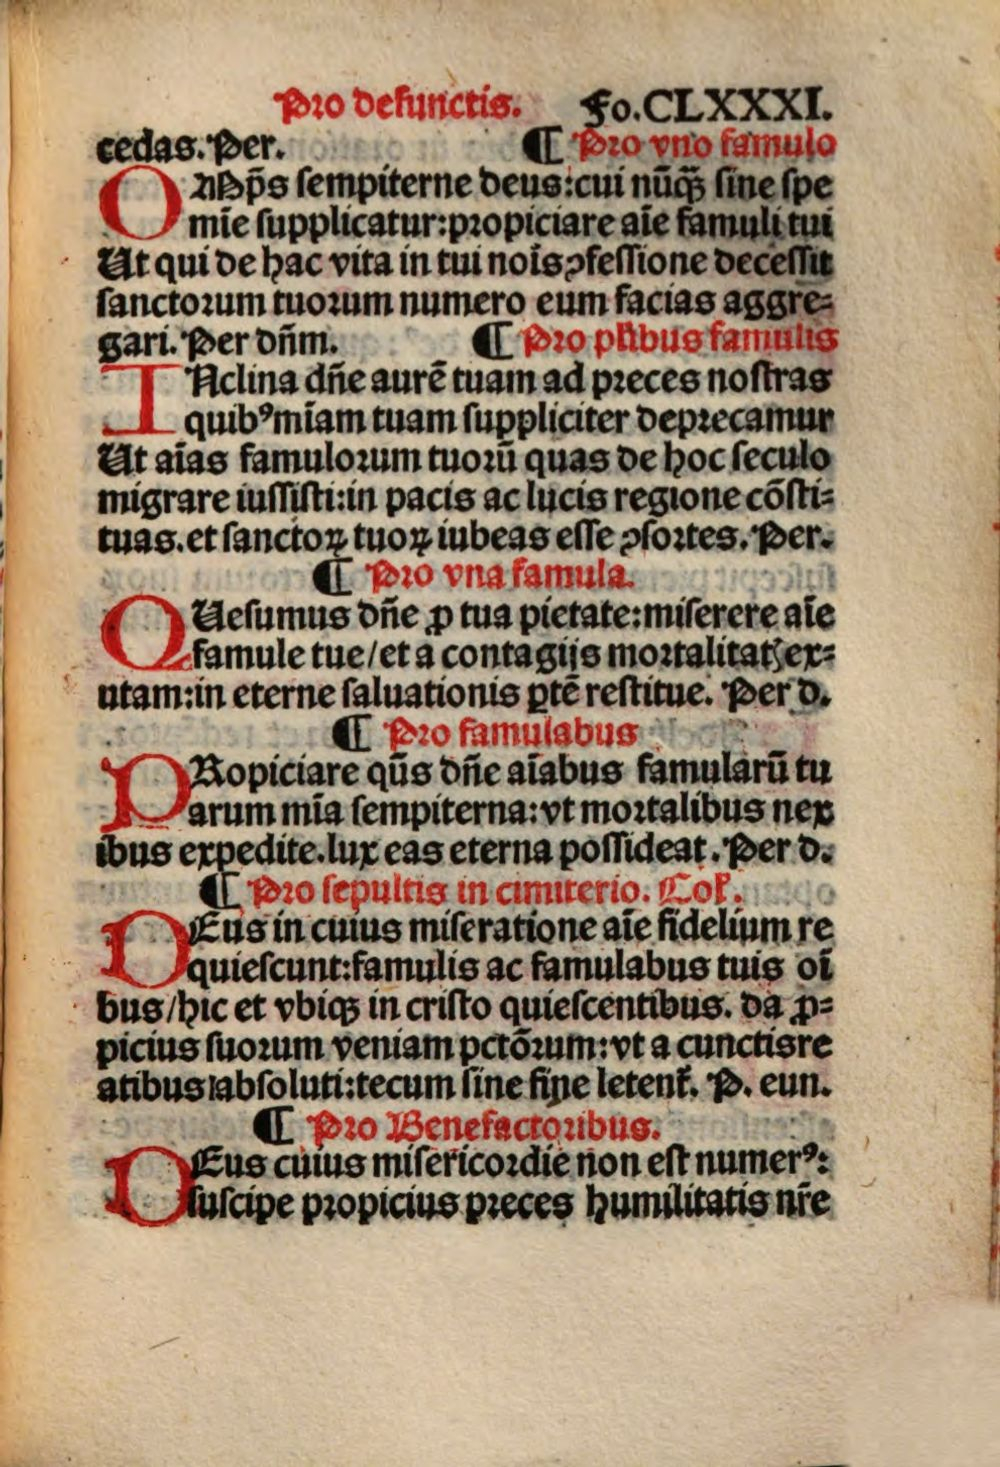 Pro defunctis. Fo.CLXXXI.
cedas. Per. ¶ Pro vno famulo
OMĪps̄ sempiterne deus: cui nūqꝫ sine spe
mīe supplicatur: propiciare aīe famuli tui
Ut qui de hac vita in tui noīs ꝯfessione decessit
sanctorum tuorum numero eum facias aggre=
gari. Per dn̄m. ¶ Pro pl̄ibus famulis
INclina dn̄e aurē tuam ad preces nostras
quibꝰ mīam tuam suppliciter deprecamur
Ut aīas famulorum tuorū quas de hoc seculo
migrare iussisti: in pacis ac lucis regione cōsti=
tuas. et sanctoꝝ tuoꝝ iubeas esse ꝯsortes. Per.
¶ Pro vna famula.
QUesumus dn̄e ꝓ tua pietate: miserere aīe
famule tue/ et a contagijs mortalitatꝭ ex=
utam: in eterne saluationis ꝑtē restitue. Per d.
¶ Pro famulabus
PRopiciare qs̄ dn̄e aīabus famularū tu
arum mīa sempiterna: vt mortalibus nex
ibus expedite. lux eas eterna possideat. Per d.
¶ Pro sepultis in cimiterio. Coƚ.
DEus in cuius miseratione aīe fidelium re
quiescunt: famulis ac famulabus tuis oī
bus/ hic et vbiqꝫ in cristo quiescentibus. da ꝓ=
picius suorum veniam pctōrum: vt a cunctis re
atibus absoluti: tecum sine fine letent᷑. P. eun.
¶ Pro Benefactoribus.
DEus cuius misericordie non est numerꝰ:
suscipe propicius preces humilitatis nr̄e